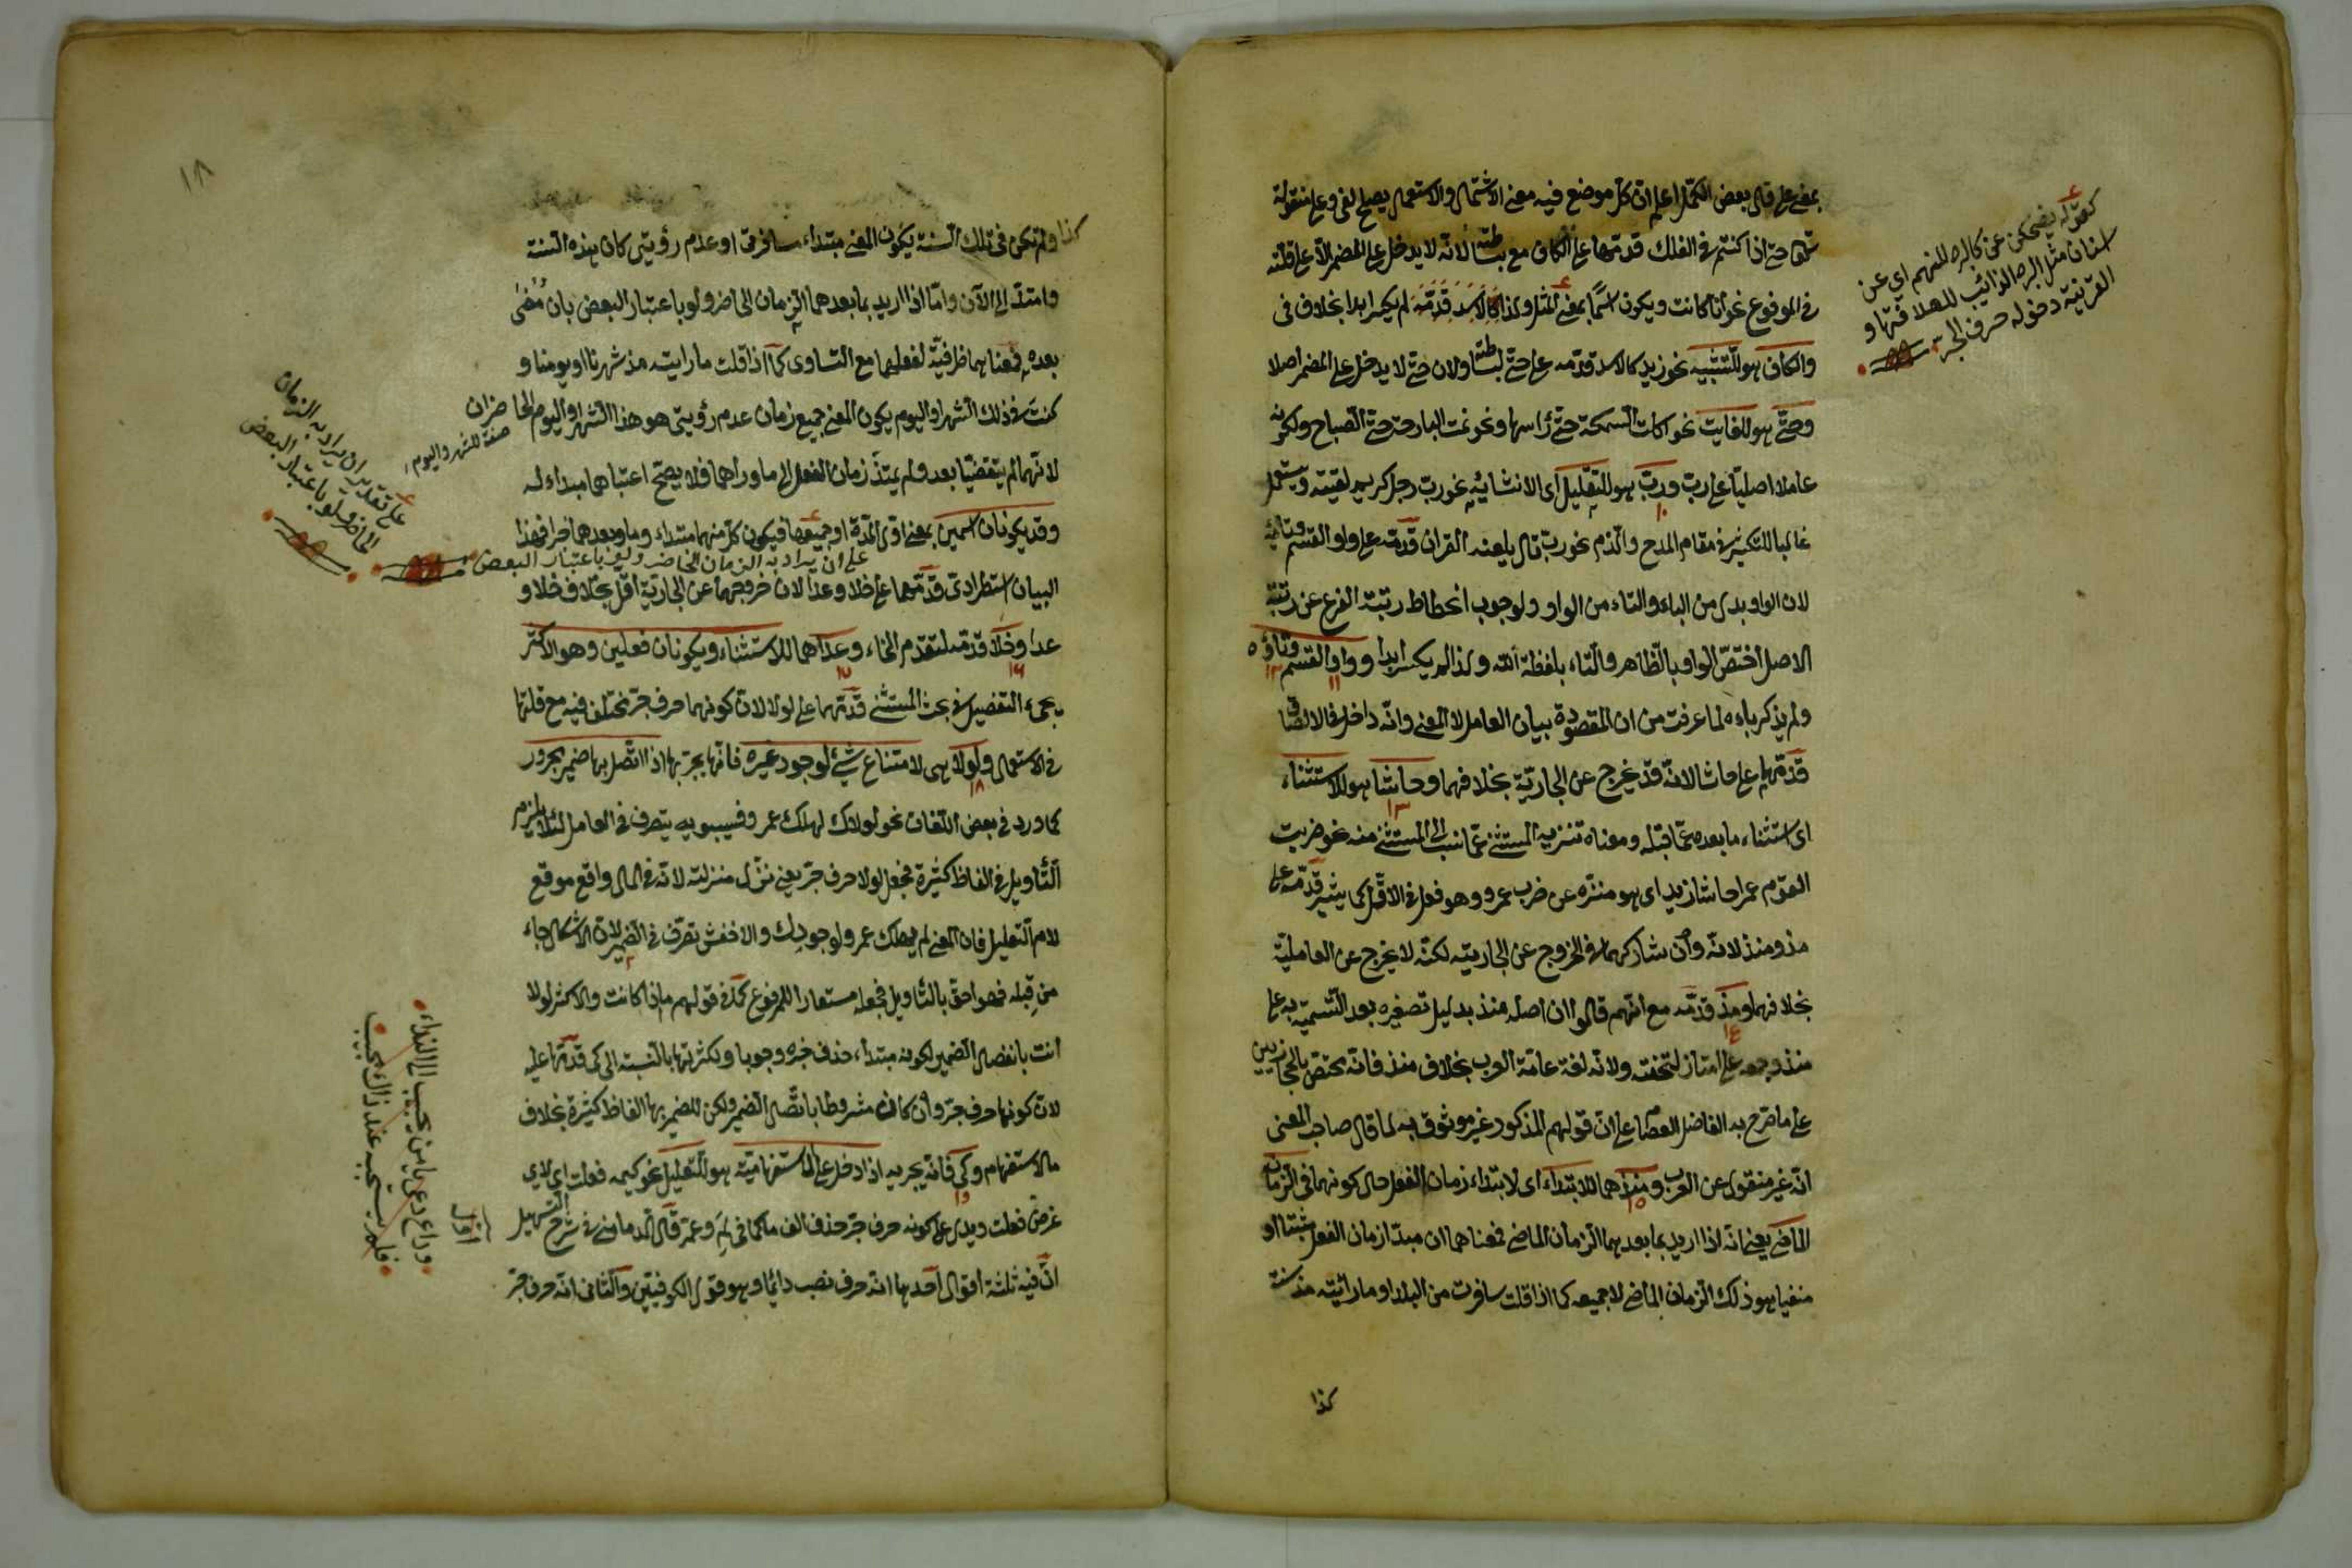 بمعنى على قال بعض الكمل اعلم ان كل موضع فيه معنى الاشتمال والاستعمال يصلح لفى وعلى منقولة
حتى اذا كنتم فى الفلك قدمها على الكاف مع بساطته لانه لا يدخل على المضمر الا على قلته
فى المرفوع نحو انا كانت ويكون اسما بمعنى المثل ولذا كالاسد قدمه لم يكسر ابدا بخلاف فى
والكاف هو للتشبيه نحو زيد كالاسد قدمه على حتى لبساطته ولان حتى لا يدخل على المضمر اصلا
وحتى هو للغاية نحو اكلت السمكة حتى رأسها ونحو نمت البارحة حتى الصباح ولكونه
عاملا اصليا على رب ورب هو للتقليل اى الانشائية نحو رب رجل كريم لقيته ويستعمل
غالبا للتكثير فى مقام المدح والذم نحو رب تال يلعنه القرآن قدمه على واو القسم وتائه
لان الواو بدل من الباء والتاء من الواو ولوجوب انحطاط رتبة الفرع عن رتبة
الاصل اختص الواو بالظاهر والتاء بلفظة الله ولذا لم يكسر ابدا وواو القسم وتاؤه
ولم يذكر باءه لما عرفت من ان المقصودة بيان العامل لا المعنى وانه داخل فى الالصاق
قدمهما على حاشا لانه قد يخرج عن الجارية بخلافهما وحاشا هو للاستثناء
اى استثناء ما بعده عما قبله ومعناه تنزيه المستثنى عما نسب الى المستثنى منه نحو ضربت
القوم عمرا حاشا زيد اى هو منزه عن ضرب عمرو وهو فعل فى الاقل كما يشير قدمه على
مذ ومنذ لانه وان شاركهما فى الخروج عن الجارية لكنه لا يخرج عن العاملية
بخلافهما ومذ قدمه مع انهم قالوا ان اصله منذ بدليل تصغيره بعد التسمية به على
منذ وجمعه على امتاز لخفته ولانه لغة عامة العرب بخلاف منذ فانه يختص بالحجازيين
على ما صرح به الفاضل العصام على ان قولهم المذكور غير موثوق به لما قال صاحب المغنى
انه غير منقول عن العرب ومنذ هما للابتداء اى لابتداء زمان الفعل حال كونهما فى الزمان
الماضى يعنى انه اذا اريد بما بعدهما الزمان الماضى فمعناهما ان مبدأ زمان الفعل مثبتا او
منفيا هو ذلك الزمان الماضى لا جميعه كما اذا قلت سافرت من البلد او ما رأيته مذ سنة
كذا
كقوله يضحكن عن كالبرد المنهم اى عن
اسنان مثل البرد الذائب للطافتها و
القرينة دخوله حرف الجر
١٨
كذا ولم تكن فى تلك السنة يكون المعنى مبتداء مسافرتى او عدم رؤيتى كان هذه السنة
وامتد الى الآن واما اذا اريد بما بعدهما الزمان الحاضر ولو باعتبار البعض بان مضى
بعده فمعناهما ظرفية لفعلهما مع التساوى كما اذا قلت ما رايته مذ شهرنا او يومنا و
كنت فى ذلك الشهر او اليوم يكون المعنى جميع زمان عدم رؤيتى هو هذا الشهر او اليوم الحاضران
صفة للشهر واليوم
لانهما لم يتقضيا بعد ولم يمتد زمان الفعل الى ما وراهما فلا يصح اعتباهما مبداء له
وقد يكونان اسمين بمعنى اول المدة او جميعها فيكون كل منهما مبتداء وما بعدهما خبرا فهذا
على ان يراد به الزمان الحاضر ولو باعتبار البعض
البيان استطرادى قدمهما على خلا وعدا لان خروجهما عن الجارية اقل بخلاف خلا و
عدا وخلا قدمه لتقدم الخاء وعدا هما للاستثناء ويكونان فعلين وهو الاكثر
يجىء التفصيل فى بحث المستثنى قدمهما على لولا لان كونهما حرف جر مختلف فيه مع قلتها
فى الاستعمال ولولا هى لامتناع شئ لوجود غيره فانها يجر بها اذا اتصل بها ضمير مجرور
كما ورد فى بعض اللغات نحو لولاك لهلك عمرو فسيبويه يتصرف فى العامل لئلا يلزم
التأويل فى الفاظ كثيرة فجعل لولا حرف جر يعنى نزل منزلته لانه فى المال واقع موقع
لام التعليل فان المعنى لم يهلك عمرو لوجودك والاخفش تصرف فى الضمير لان الاشكال جاء
من قبله فهو احق بالتأويل فجعله مستعارا للمرفوع كما فى قولهم ما انا كانت والاكثر لولا
انت بانفصال الضمير لكونه مبتداء حذف خبره وجوبا ولكثرتها بالنسبة الى كى قدمها عليه
لان كونها حرف جر وان كان مشروطا باتصال الضمير ولكن للضمير بها الفاظ كثيرة بخلاف
ما الاستفهام وكى فانه يجر به اذا دخل على ما الاستفهامية هو للتعليل نحو كيمه فعلت اى لاى
غرض فعلت ويدل على كونه حرف جر حذف الف ما كما فى لم وعم قال الدمامينى فى شرح التسهيل
ان فيه ثلثة اقوال احدها انه حرف نصب دائما وهو قول الكوفيين والثانى انه حرف جر
على تقدير ان يراد به الزمان
الحاضر ولو باعتبار البعض
اول
وداع دعى يا من يجيب الى النداء
فلم يستجبه عند ذاك مجيب